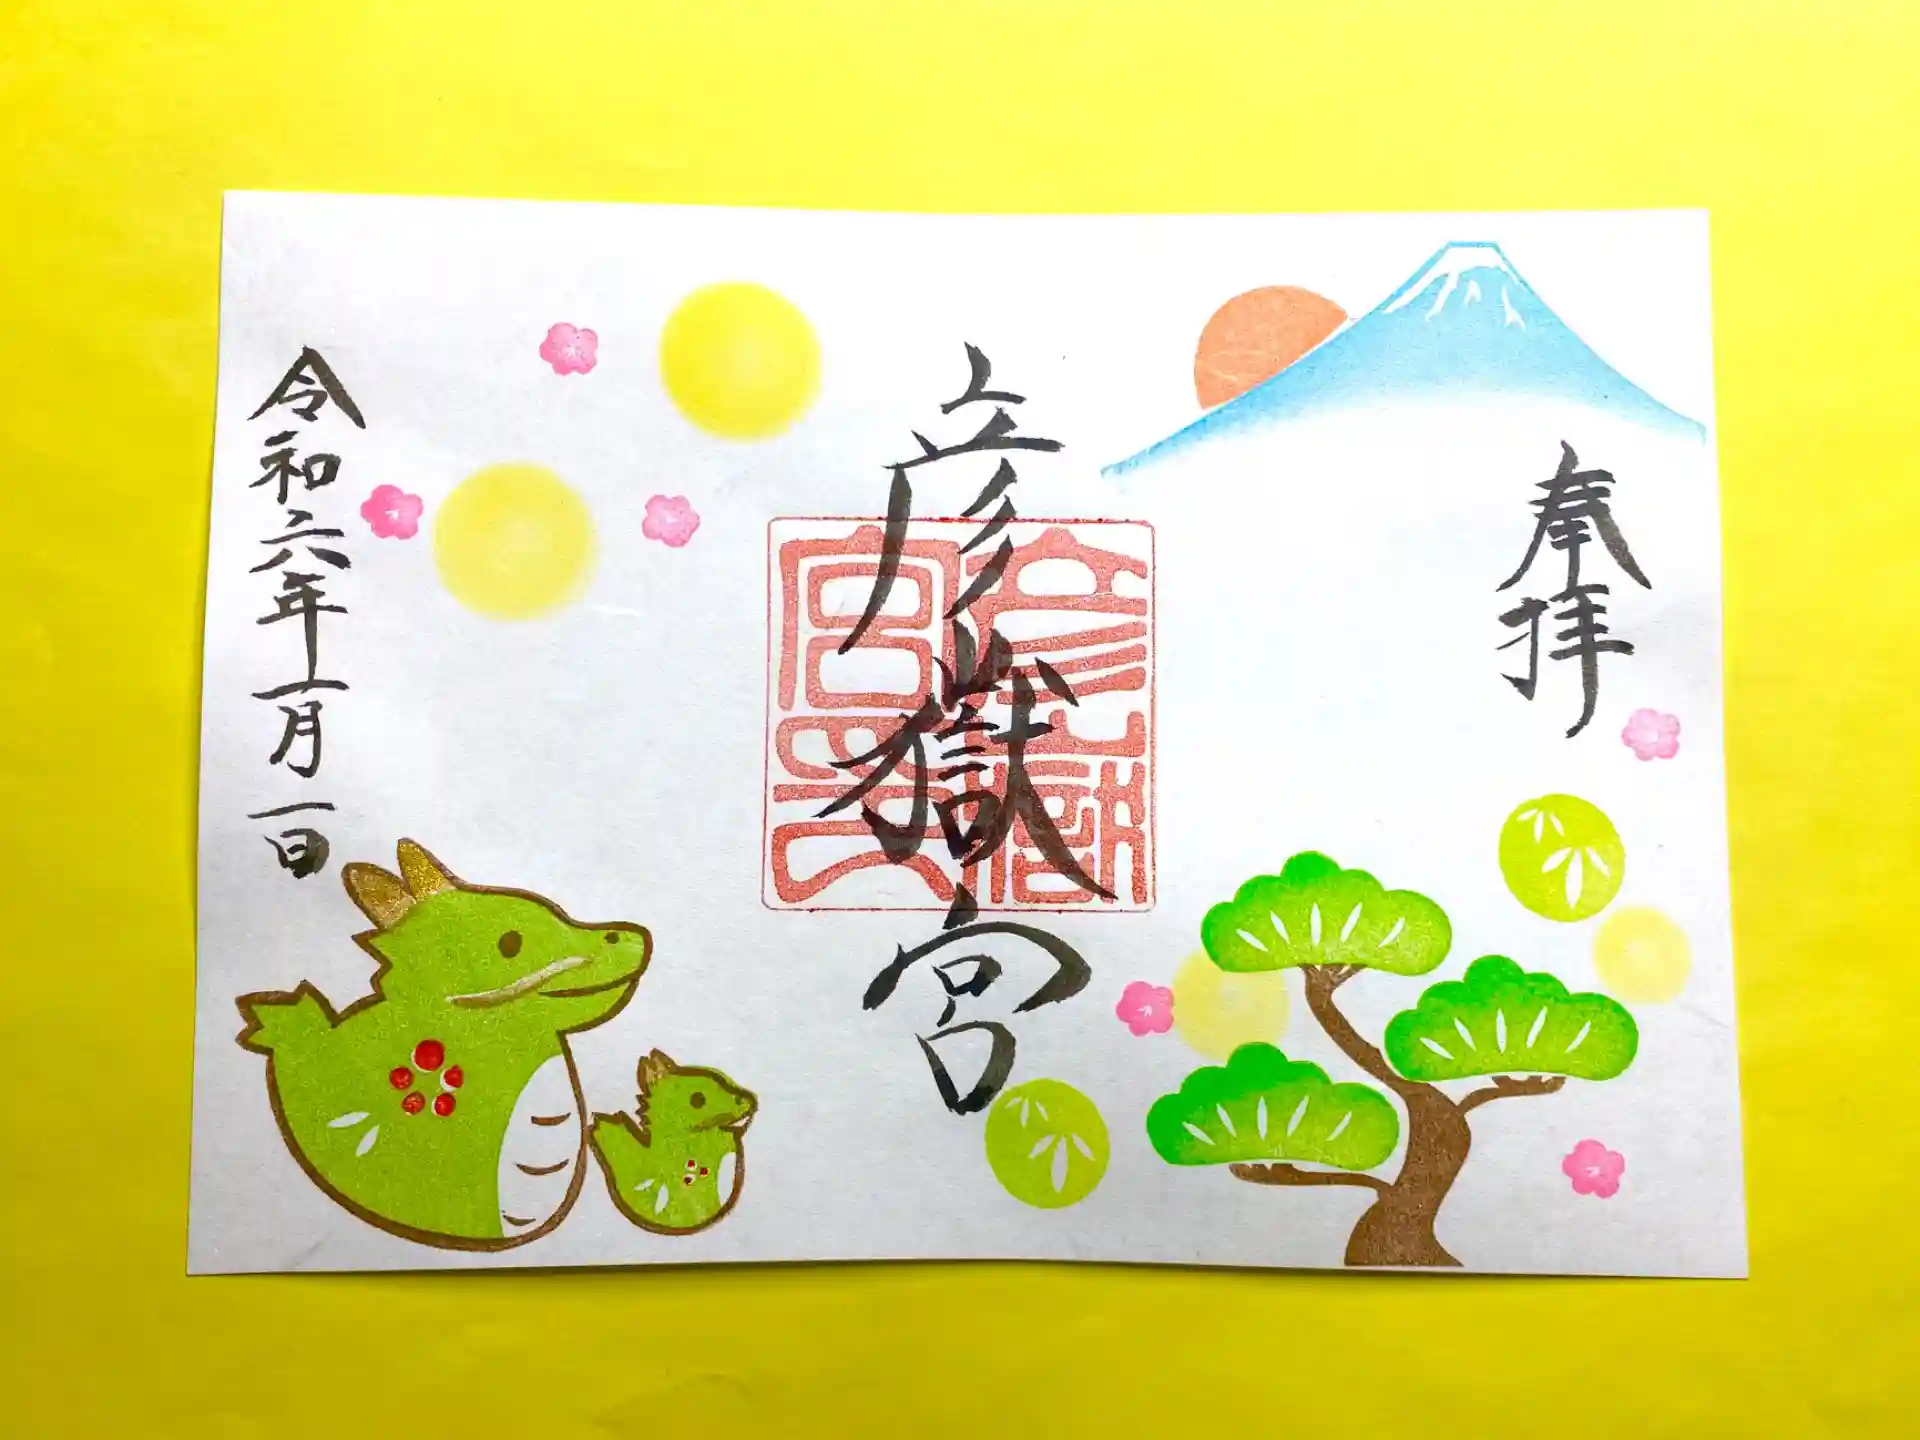 奉拝
彦嶽宮
令和六年一月一日